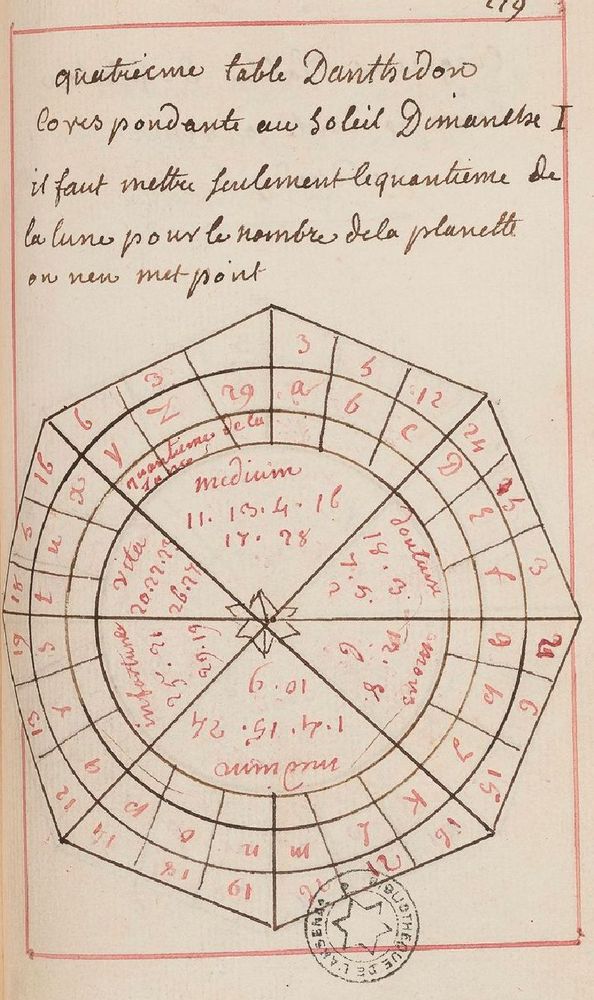 219
quatriéme table Danthidon
Corespondante au Soleil Dimanche I
il faut mettre seulement lequantieme de
la lune pour le nombre dela planette
on nen met point
3 5 12 24 3 21 6 15 16 21 22 19 18 14 12 13 19 18 5 16 6 3 29
a b c D E f g h K L m n o p q r s t u x y Z
quantieme de la
Lune
medium
11. 13. 4. 16
17. 28
douteuse
18. 3.
7. 5.
2
mors
12. 8.
6
medium
1. 4. 15. 24
10. 9
infortuna
25. 21
29. 19
vita
20. 22. 23
26. 27
BIBLIOTHEQUE DE L'ARSENAL